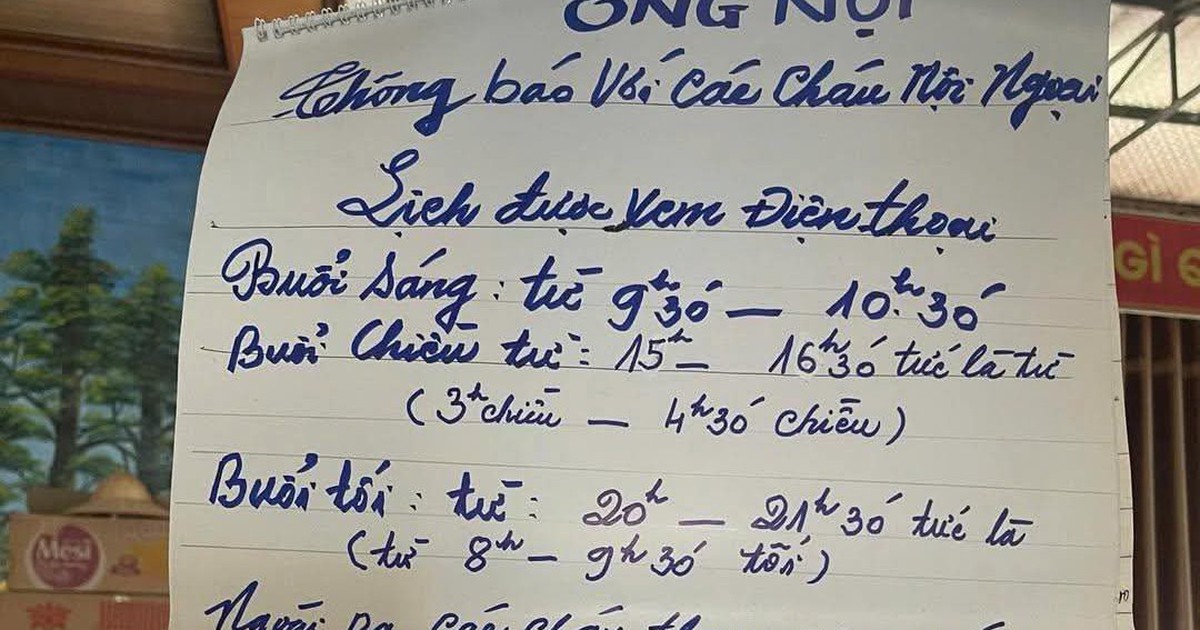 ÔNG NỘI
Thông báo Với các Cháu Nội Ngoại
Lịch được xem Điện thoại
Buổi sáng: từ 9h30' — 10h.30'
Buổi Chiều từ: 15h — 16h30' tức là từ
(3h chiều — 4h30' chiều)
Buổi tối: từ: 20h — 21h30' tức là
(từ 8h — 9h30' tối)
Ngoài ra các cháu
GÌ
Mesi